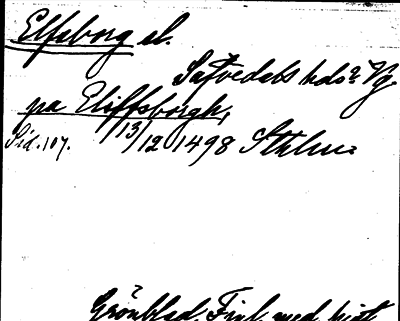 Elfsborg sl.
Säfvedals hds? Vg.
pa Eliffsborgh,
Sid. 107. 13/12 1498 Sthlm.
Grönblad. Finl. med